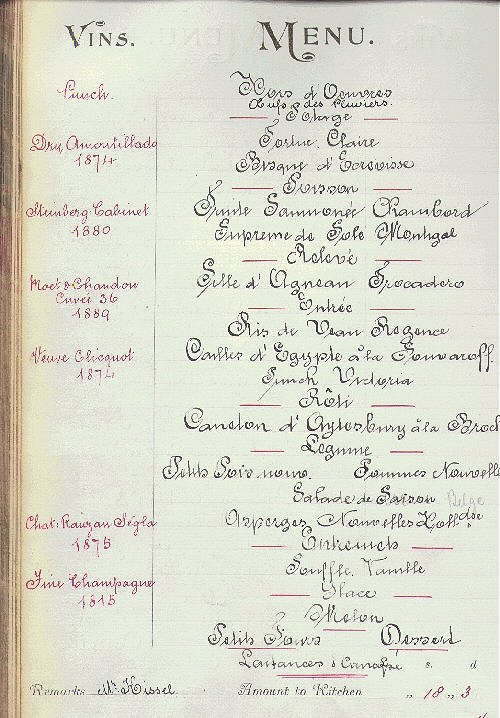 VINS. MENU.
Punch. Hors d'Oeuvres
Oeufs des Pluviers.
Potage
Dry Amontillado Tortue. Claire
1874 Bisque d'Ecrevisse
Poisson
Steinberg Cabinet Truite Saumonée Chambord
1880 Supreme de Sole Montgal
Relevé
Moët & Chandon Selle d'Agneau Trocadero
Cuvée 36 Entrée
1889 Ris de Veau Regence
Veuve Clicquot Cailles d'Egypte à la Souvaroff.
1874 Punch Victoria
Rôti
Caneton d'Aylesbury à la Broch
Legume
Petits Pois nouv. Pommes Nouvelle
Salade de Saison Belge
Chat: Rauzan Ségla Asperges Nouvelles
1875 Entremets
Fine Champagne Souffle. Vanille
1815 Glace
Melon
Petits Fours Dessert
s. d
Remarks Mr. Kissel Amount to Kitchen „ 18 „ 3